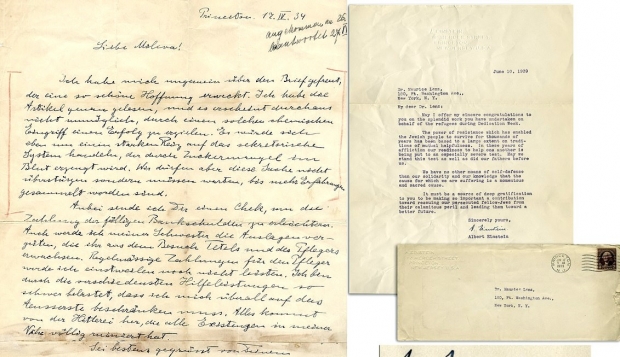 Princeton. 17. IX. 34
angekommen 26
beantwortet 27
Liebe Meliva!
Ich habe mich ungemein über den Brief gefreut,
der eine so schöne Hoffnung erweckt. Ich habe die
Artikel genau gelesen, und es erscheint durchaus
nicht unmöglich, durch einen solchen chemischen
Eingriff einen Erfolg zu erzielen. Es würde sich
eben um einen starken Reiz auf das sekretorische
System handeln, der durch Zuckermangel im
Blut erzeugt wird. Wir dürfen aber diese Sache nicht
überstürzen sondern müssen warten, bis mehr Erfahrungen
gesammelt worden sind.
Anbei sende ich Dir einen Check, um die
Zahlung der fälligen Bankschulden zu erleichtern.
Auch werde ich meiner Schwester die Auslagen ver-
güten, die ihr aus dem Besuch Tetels und des Pflegers
erwachsen. Regelmässige Zahlungen für den Pfleger
würde ich einstweilen noch nicht leisten. Ich bin
durch die verschiedensten Hilfeleistungen so
schwer belastet, dass ich mich überall auf das
Äusserste beschränken muss. Alles kommt
von der Hitlerei her, die alle Existenzen in meiner
Nähe völlig ruiniert hat.
Sei bestens gegrüsst von Deinem
June 10, 1939
Dr. Maurice Lenz,
190, Ft. Washington Ave.,
New York, N. Y.
My dear Dr. Lenz:
May I offer my sincere congratulations to
you on the splendid work you have undertaken on
behalf of the refugees during Dedication Week.
The power of resistance which has enabled
the Jewish people to survive for thousands of
years has been based to a large extent on tradi-
tions of mutual helpfulness. In these years of
affliction our readiness to help one another is
being put to an especially severe test. May we
stand this test as well as did our fathers before
us.
We have no other means of self-defense
than our solidarity and our knowledge that the
cause for which we are suffering is a momentous
and sacred cause.
It must be a source of deep gratification
to you to be making so important a contribution
toward rescuing our persecuted fellow-Jews from
their calamitous peril and leading them toward a
better future.
Sincerely yours,
A. Einstein
Albert Einstein
Dr. Maurice Lenz,
190, Ft. Washington Ave.,
New York, N. Y.